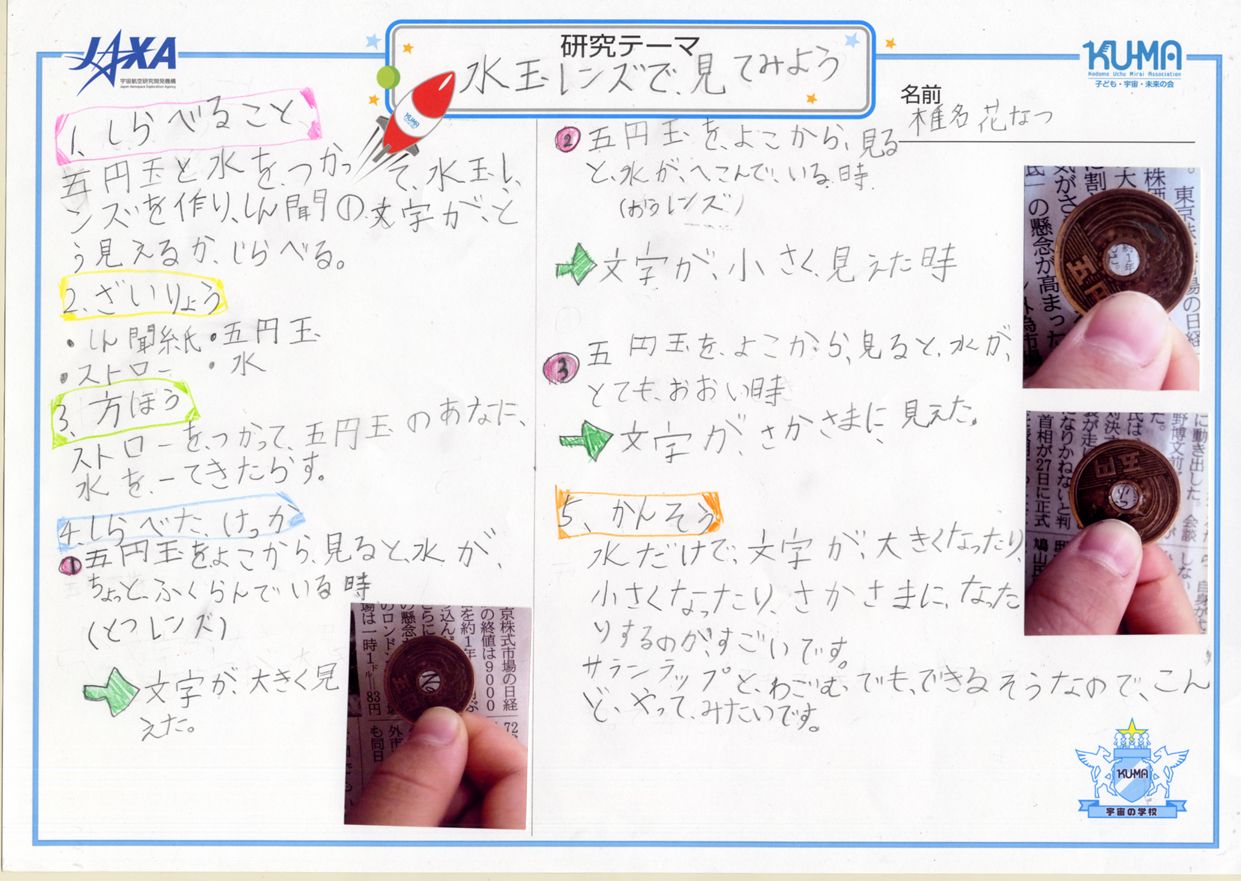 JAXA
宇宙航空研究開発機構
Japan Aerospace Exploration Agency
研究テーマ
水玉レンズで見てみよう
KU-MA
Kodomo Uchu Mirai Association
子ども・宇宙・未来の会
名前
椎名花なつ
1、しらべること、
五円玉と水を、つかって、水玉レ
ンズを作り、しん聞の文字が、ど
う見えるか、じらべる。
2、ざいりょう
・しん聞紙・五円玉
・ストロー ・水
3、方ほう
ストローを、つかって、五円玉のあなに、
水を、一てきたらす。
4.しらべた、けっか
1 五円玉をよこから、見ると、水が、
ちょっと、ふくらんでいる時
(とつレンズ)
文字が、大きく見
えた。
京株式市場の日経
の終値は9000
を約1年
込ん。
の懸念
らに
のロンドン
場は一時1ドル
83円
72
外市
も同日
2 五円玉を、よこから、見る
と、水が、へこんで、いる、時
(おうレンズ)
文字が、小さく、見えた時
3 五円玉を、よこから、見ると、水が、
とても、おおい時
文字が、さかさまに、見えた。
東京株
株価
大
に割
気がさ
氏」の懸念が高まった
の日経
外為市
五円
約1年
に動き出した。会談
野博文前
た。
氏は
対決す
表が走し
なりかねないと判
首相が27日に正式
鳩山
しない
自身が
5、かんそう
水だけで、文字が、大きくなったり、
小さくなったり、さかさまに、なった
りするのが、すごいです。
サランラップと、わごむ、でも、できるそうなので、こん
ど、やって、みたいです。
KU-MA
宇宙の学校